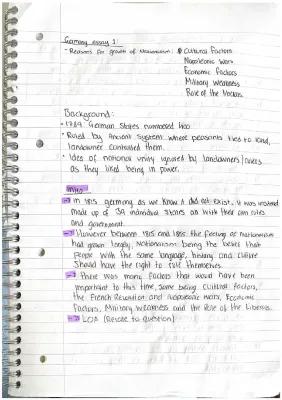 Germany essay 1:
- Reasons for growth of Nationalism: Cultural Factors
Napoleonic Wars
Economic Factors
Military Weakness
Role of the
Background:
• 1789: German States numbered
• Ruled by Ancient System where peasants tied to land,
landowner controlled them.
• Idea of national unity ignored by landowners/rulers
as they liked being in power.
Intro
→ In 1815 germany as we know it did not exist. It was instead
made up of 39 individual states all with their own rules
and government.
→ However between 1815 and 1850 the feeling of nationalism
had grown largely. Nationalism being the belief that
people with the same language, history and culture
should have the right to rule themselves.
→ There was many factors that would have been
important to this time, some being cultural factors,
the French Revolution and Napoleonic wars, Economic
Factors, Military weakness and the Role of the Liberals.
→ LOA (Relate to question)